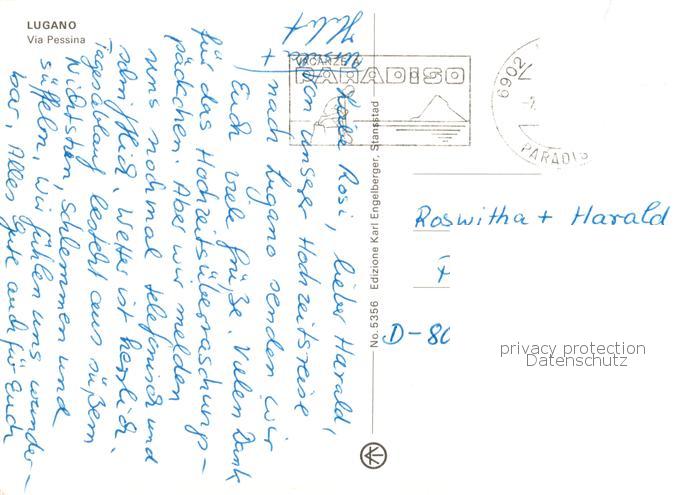 LUGANO
Via Pessina
Liebe Rosi, lieber Harald,
von unserer Hochzeitsreise
nach Lugano senden wir
Euch viele Grüße. Vielen Dank
für das Hochzeitsüberraschungs-
päckchen. Aber wir melden
uns nochmal telefonisch und
schriftlich. Wetter ist herrlich.
Tagesablauf besteht aus süßem
Nichtstun, schlemmen und
süffeln. Wir fühlen uns wunder-
bar. Alles Gute auch für Euch
+
No. 5356 Edizione Karl Engelberger, Stansstad
VACANZE A
PARADISO
6902
PARADIS
Roswitha + Harald
D-80
privacy protection
Datenschutz